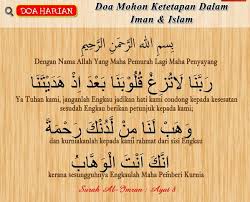 DOA HARIAN
Doa Mohon Ketetapan Dalam
Iman & Islam
بِسْمِ اللهِ الرَّحْمَنِ الرَّحِيْمِ
Dengan Nama Allah Yang Maha Pemurah Lagi Maha Penyayang
رَبَّنَا لَا تُزِغْ قُلُوْبَنَا بَعْدَ إِذْ هَدَيْتَنَا
Ya Tuhan kami, janganlah Engkau jadikan hati kami condong kepada kesesatan
sesudah Engkau berikan petunjuk kepada kami;
وَهَبْ لَنَا مِنْ لَدُنْكَ رَحْمَةً
dan kurniakanlah kepada kami rahmat dari sisi Engkau
اِنَّكَ اَنْتَ الْوَهَّابُ
kerana sesungguhnya Engkaulah Maha Pemberi Kurnia
Surah Al-'Imran : Ayat 8